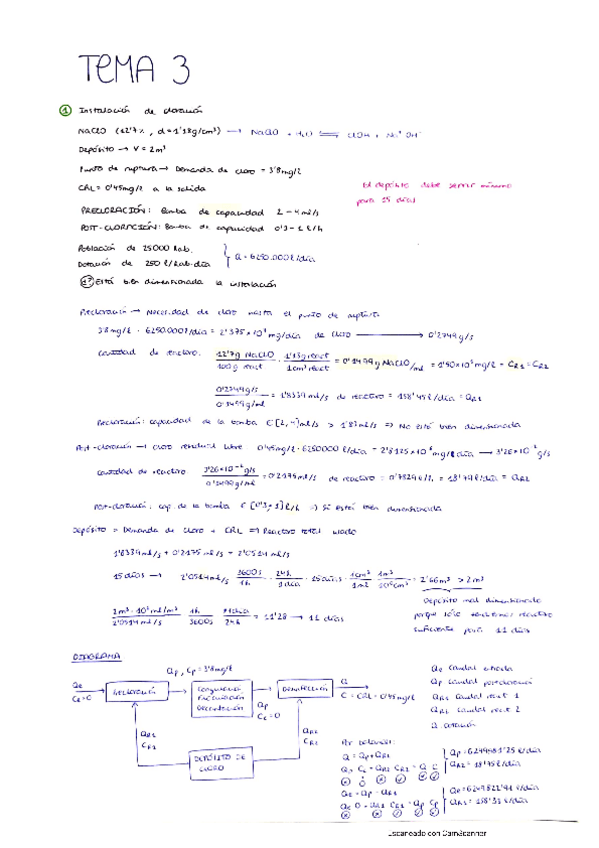 TEMA 3
① Instalación de cloración
NaClO (12'7%, d=1'18g/cm³) → NaClO + H₂O ⇌ ClOH + Na⁺ OH⁻
Depósito → V = 2m³
Punto de ruptura → Demanda de cloro = 3'8mg/l
CRL = 0'45mg/l a la salida
El depósito debe servir mínimo
para 15 días
PRECLORACIÓN: Bomba de capacidad 2-4 ml/s
POST-CLORACIÓN: Bomba de capacidad 0'3-1 l/h
Población de 25000 hab.
Dotación de 250 l/hab·día
Q = 6250.000 l/día
¿Está bien dimensionada la instalación
Precloración → Necesidad de cloro hasta el punto de ruptura
3'8mg/l · 6250.000 l/día = 2'375×10⁷ mg/día de cloro → 0'2749 g/s
Cantidad de reactivo: 12'7g NaClO / 100g react · 1'18g react / 1cm³ react = 0'1499g NaClO/ml = 1'50×10⁵ mg/l = CR1 = CR2
0'2749 g/s / 0'1499 g/ml = 1'8339 ml/s de reactivo = 158'45 l/día = QR1
Precloración: capacidad de la bomba ∈ [2,4] ml/s > 1'83 ml/s ⇒ No está bien dimensionada
Post-cloración → cloro residual libre 0'45mg/l · 6250000 l/día = 2'8125×10⁶ mg/día → 3'26×10⁻² g/s
Cantidad de reactivo 3'26×10⁻² g/s / 0'1499 g/ml = 0'2175 ml/s de reactivo = 0'7829 l/h = 18'79 l/día = QR2
Post-cloración: cap. de la bomba ∈ [0'3,1] l/h ⇒ Sí está bien dimensionada
Depósito = Demanda de cloro + CRL ⇒ Reactivo total usado
1'8339 ml/s + 0'2175 ml/s = 2'0514 ml/s
15 días → 2'0514 ml/s · 3600s / 1h · 24h / 1día · 15 días · 1cm³ / 1ml · 1m³ / 10⁶cm³ = 2'66m³ > 2m³
Depósito mal dimensionado
porque sólo tendremos reactivo
suficiente para 11 días
2m³ · 10⁶ ml/m³ / 2'0514 ml/s · 1h / 3600s · 1día / 24h = 11'28 → 11 días
DIAGRAMA
Qe
Ce=0
PRECLORACIÓN
Qp, Cp = 3'8mg/l
COAGULACIÓN
FLOCULACIÓN
DECANTACIÓN
Qp
Cc=0
DESINFECCIÓN
Q
C = CRL = 0'45mg/l
QR1
CR1
QR2
CR2
DEPÓSITO DE
CLORO
Qe Caudal entrada
Qp Caudal
QR1 Caudal react 1
QR2 Caudal react 2
Q dotación
Por balances:
Q = Qp + QR2
Qp Cc + QR2 CR2 = Q C
Qp = 6249981'25 l/día
QR2 = 18'75 l/día
Qe = Qp - QR1
Qe 0 + QR1 CR1 = Qp Cp
Qe = 6249822'94 l/día
QR1 = 158'31 l/día
Escaneado con CamScanner